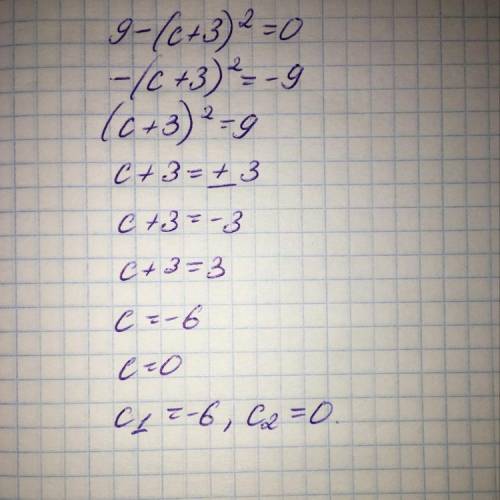 9-(c+3)²=0
-(c+3)²=-9
(c+3)²=9
c+3=±3
c+3=-3
c+3=3
c=-6
c=0
c₁=-6, c₂=0.